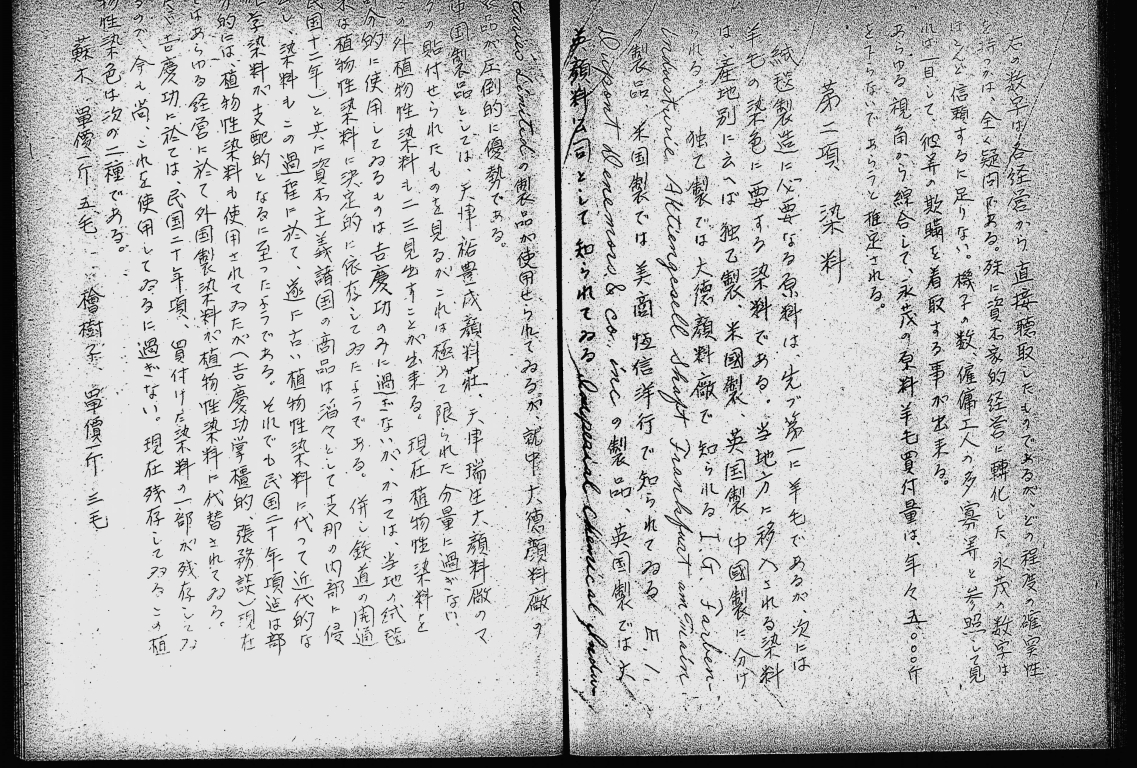 右の数字は各経営から直接聴取したものであるが、どの程度の確実性
を持つかは、全く疑問である。殊に資本家的経営に轉化した永茂の数字は
ほとんど信頼するに足りない。機子の数、雇傭工人の多寡等と参照して見
れば一目して、彼等の欺瞞を看取する事が出来る。
あらゆる視角から綜合して、永茂の原料羊毛買付量は、年々五〇〇〇斤
を下らないであらうと推定される。
第二項 染料
絨毯製造に必要なる原料は先づ第一に羊毛であるが、次には
羊毛の染色に要する染料である。当地方に移入される染料
は、産地別に云へば独乙製、米國製、英国製、中國製に分け
られる。 独乙製では大德顔料廠で知られる I.G. Farben-
industrie Aktiengesellshaft Frankfurt am Main,
の製品、米国製では美商恒信洋行で知られてゐる E.I.
Dupont Denemors & co. inc の製品、英国製では大
英顔料公司として知られてゐる Imperial Chemical Indus
tries Limited の製品が使用せられてゐるが、就中大德顔料廠の
品が圧倒的に優勢である。
中国製品としては、天津裕豊成顔料荘、天津瑞生大顔料廠のマ
クの貼付せられたものを見るが、これは極めて限られた分量に過ぎない、
この外植物性染料も二三見出すことが出来る。現在植物性染料を
分的に使用してゐるものは吉慶功のみに過ぎないが、かつては、当地の絨毯
は植物性染料に決定的に依存してゐたようである。併し鉄道の開通
民国十二年)と共に資本主義諸国の商品は滔々として支那の内部に侵
し、染料もこの過程に於て、遂に古い植物性染料に代って近代的な
化学染料が支配的となるに至ったようである。それでも民国二十年頃迄は部
分的には、植物性染料も使用されてゐたが(吉慶功掌櫃的張務談)現在
はあらゆる経営に於て外国製染料が植物性染料に代替されてゐる。
だ吉慶功に於ては民国二十年頃、買付けた染料の一部が残存してゐ
るので、今も尚、これを使用してゐるに過ぎない。現在残存してゐるこの植
物性染色は次の二種である。
蘇木、單價一斤 五毛、 檜樹子、單價一斤 三毛